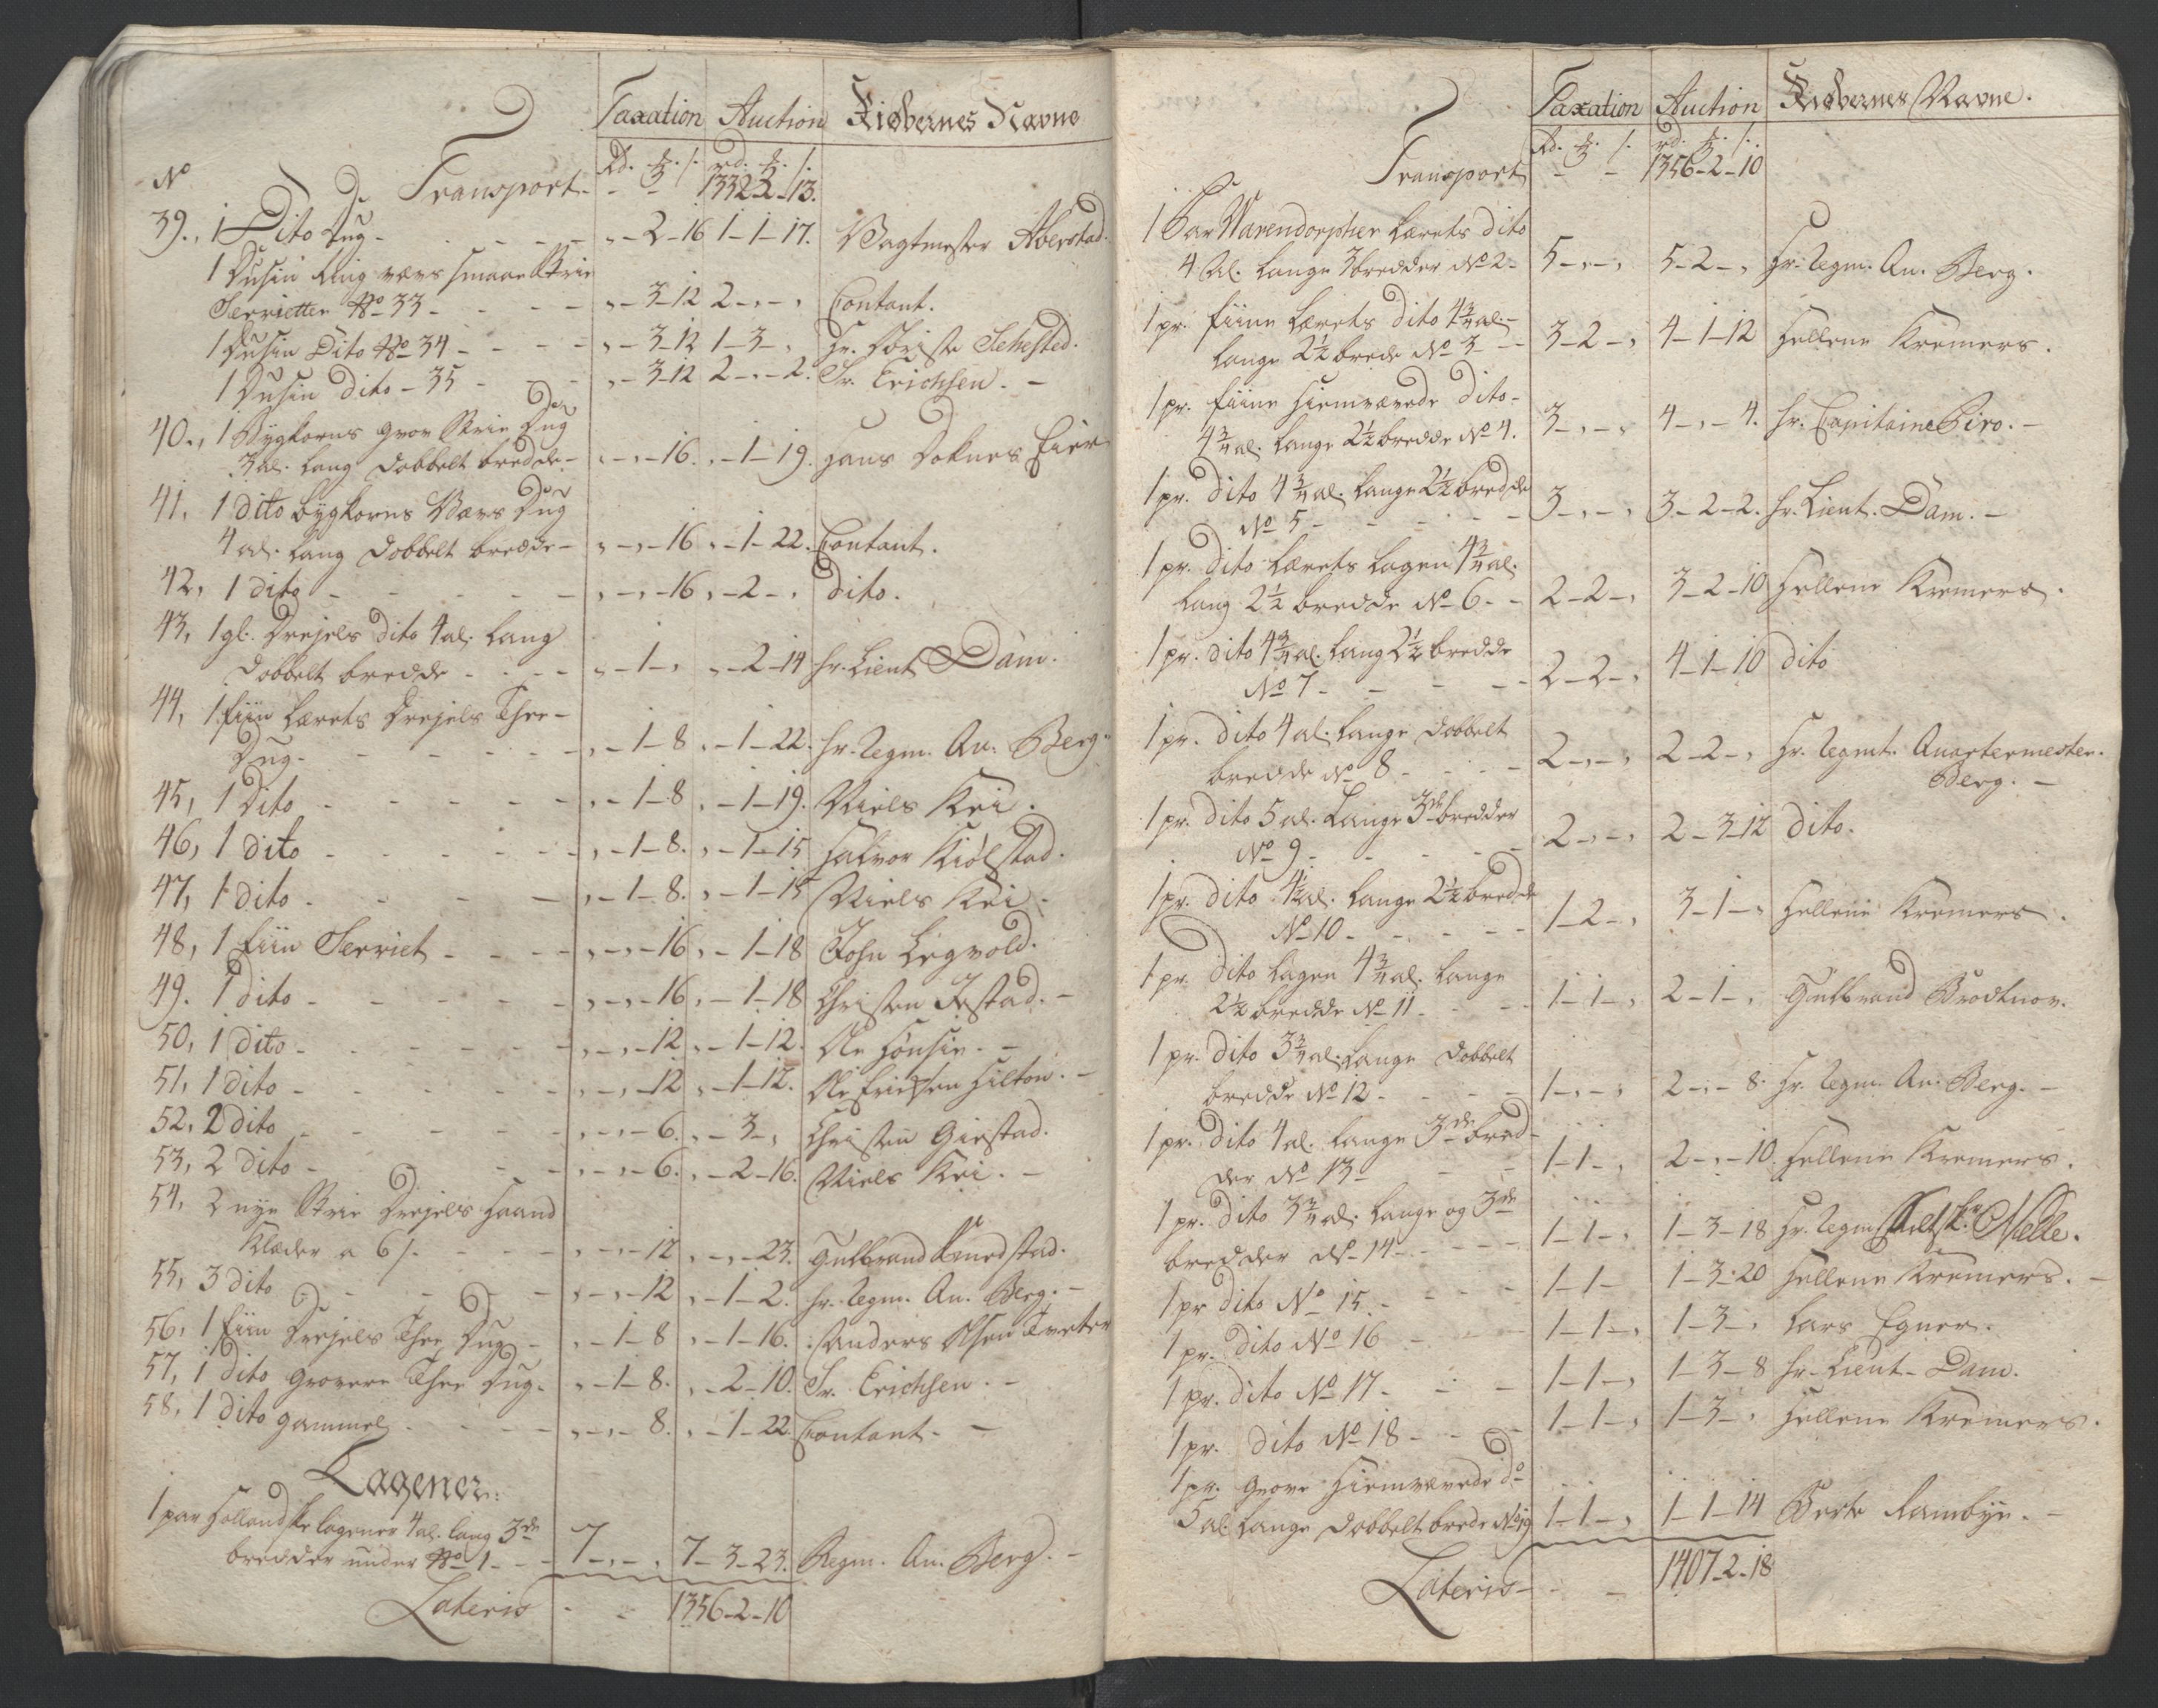 Taxation Auction Kiøbernes Navne
No Rd. ₰. s. rd. ₰. s.
Transport - - 1332-2-13.
39., 1 Dito Dug - „-2-16 1-1-17. Wagtmester Aberstad.
1 Dusin Ring værs smaae Strie
Servietter No 33 - „-3-12 2-„-„ Contant.
1 Dusin Dito No 34 - „-3-12 1-3-„ Hr. Sehested.
1 Dusin dito - 35 - „-3-12 2-„-2. Sr. Erichsen. -
40., 1 Bygkorns grov Strie Dug
3 al. lang dobbelt bredde- „-„-16. „-1-19. Hans Eier
41, 1 dito bygkorns Værs Dug
4 al. lang dobbelt bredde- „-„-16 „-1-22. Contant.
42, 1 dito - „-„-16 „-2-„ dito.
43, 1 gl. Drejels dito 4 al. lang
dobbelt bredde - „-1-„ „-2-14 Hr. Lieut Dam.
44, 1 fiin Lærets Drejels Thee-
Dug - „-1-8 „-1-22. Hr. Regm. Qu. Berg.
45, 1 Dito - „-1-8 „-1-19. Niels Kei.
46, 1 dito - „-1-8. „-1-15 Halvor Kiølstad.
47, 1 dito - „-1-8. „-1-15 Niels Kei.
48, 1 fiin Serviet - „-„-16 „-1-18 John Legvold.
49. 1 dito - „-„-16 „-1-18 Christen Jestad. -
50, 1 dito - „-„-12 „-1-12. Ole Hønsie. -
51, 1 dito - „-„-12 „-1-12. Ole Erichsen Hilton. -
52, 2 dito - „-„-6. „-3-„ Christen Giestad.
53, 2 dito - „-„-6. „-2-16. Niels Kei. -
54, 2 nye Strie Drejels Haand
Klæder a 6 s. - „-„-12 „-„-23. Gulbrand Knudstad.
55, 3 dito - „-„-12 „-1-2. Hr. Regm. Qu. Berg. -
56, 1 fiin Drejels Thee Dug - „-1-8 „-1-16. Anders Olsen Tveter
57, 1 dito grovere Thee Dug - „-1-8. „-2-10. Sr. Erichsen. -
58, 1 dito gammel - „-„-8. „-1-22 Contant. -
Lagener.
1 par Hollandske lagener 4 al. lang 3de
bredder under No 1 - 7-„-„ 7-3-23. Regm. Qu. Berg. -
Lateris - - 1356-2-10
Taxation Auction Kiøbernes Navne.
Rd. ₰. s. rd. ₰. s.
Transport - - 1356-2-10
1 Par Warendorpher Lærets dito
4 Al. lange 3 bredder No 2 - 5-„-„ 5-2-„ Hr. Regm. Qu. Berg.
1 pr. fiine Lærets dito 4¾ al. -
lange 2½ brede No 3 - 3-2-„ 4-1-12 Hellene Kremers.
1 pr. fiine Hiemvævede dito -
4¾ al. lange 2½ bredde No 4. 3-„-„ 4-„-4. Hr. Capitaine Biro. -
1 pr. dito 4¾ al. lange 2½ bredde
No 5 - 3-„-„ 3-2-2. Hr. Lieut. Dam. -
1 pr. dito Lærets lagen 4¾ al.
lang 2½ bredde No 6 - 2-2-„ 3-2-10 Hellene Kremers.
1 pr. dito 4¾ al. lang 2½ bredde
No 7 - 2-2-„ 4-1-10 dito
1 pr. dito 4 al. lange dobbelt
bredde No 8 - 2-„-„ 2-2-„ Hr. Regmt. Quartermester
Berg. -
1 pr. dito 5 al. Lange 3de bredder
No 9 - 2-„-„ 2-3-12 dito.
1 pr. dito 4½ al. lange 2½ bredde
No 10 - 1-2-„ 3-1-„ Hellene Kremers.
1 pr. dito lagen 4¾ al. lange
2½ bredde No 11 - 1-1-„ 2-1-„ Gulbrand Brodtnov.
1 pr. dito 3¾ al. Lange dobbelt
bredde No 12 - 1-„-„ 2-„-8. Hr. Regm. Qu. Berg. -
1 pr. dito 4 al. lange 3de bred-
der No 13 - 1-1-„ 2-„-10. Hellene Kremers.
1 pr. dito 3¾ al. lange og 3de
bredder No 14 - 1-1-„ 1-3-18 Hr. Regm. Feltsk. Melle.
1 pr dito No 15. - 1-1- 1-3-20 Hellene Kremers. -
1 pr. dito No 16 - 1-1-„ 1-3-„ Lars Egner.
1 pr. dito No 17 - 1-1-„ 1-3-8 Hr. Lieut. Dam.
1 pr. dito No 18 - 1-1-„ 1-3-„ Hellene Kremers.
1 pr. grove Hiemvævede do
5 al. lange dobbelt brede No 19 1-1-„ 1-1-14 Berte Rambye. -
Lateris - - 1407-2-18